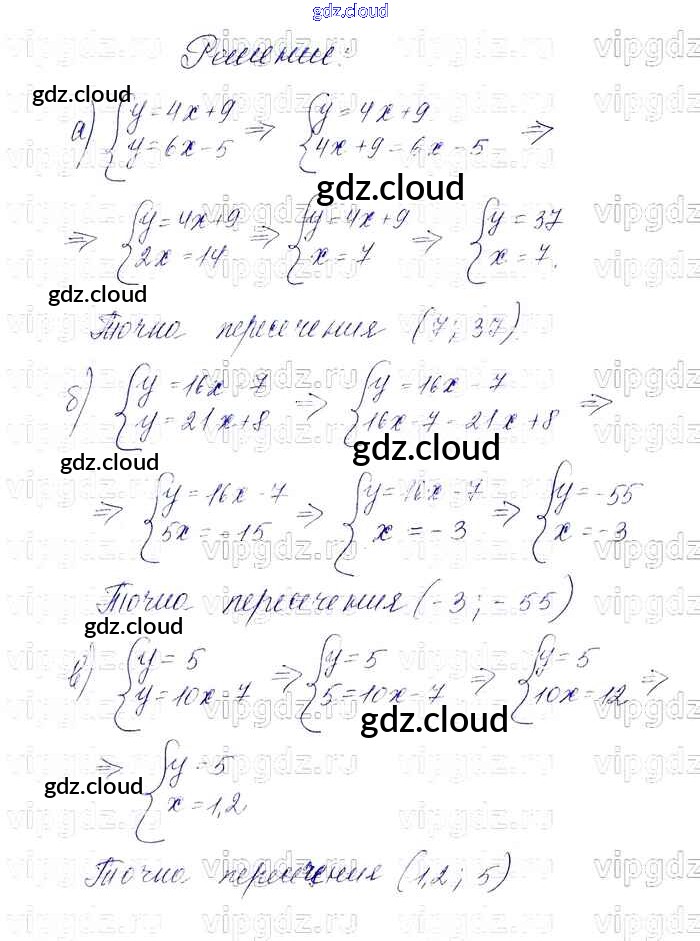 gdz.cloud
Решение:
gdz.cloud
а) { y = 4x + 9 ⇒ { y = 4x + 9
y = 6x - 5 4x + 9 = 6x - 5 ⇒
gdz.cloud
⇒ { y = 4x + 9 ⇒ { y = 4x + 9 ⇒ { y = 37
2x = 14 x = 7 x = 7.
gdz.cloud
Точка пересечения (7; 37)
б) { y = 16x - 7 ⇒ { y = 16x - 7
y = 21x + 8 16x - 7 - 21x + 8 ⇒
gdz.cloud
gdz.cloud
⇒ { y = 16x - 7 ⇒ { y = 16x - 7 ⇒ { y = -55
5x = -15 x = -3 x = -3
Точка пересечения (-3; -55)
gdz.cloud
в) { y = 5 ⇒ { y = 5 ⇒ { y = 5
y = 10x - 7 5 = 10x - 7 10x = 12 ⇒
gdz.cloud
⇒ { y = 5
gdz.cloud
x = 1,2
Точка пересечения (1,2; 5)
vipgdz.ru